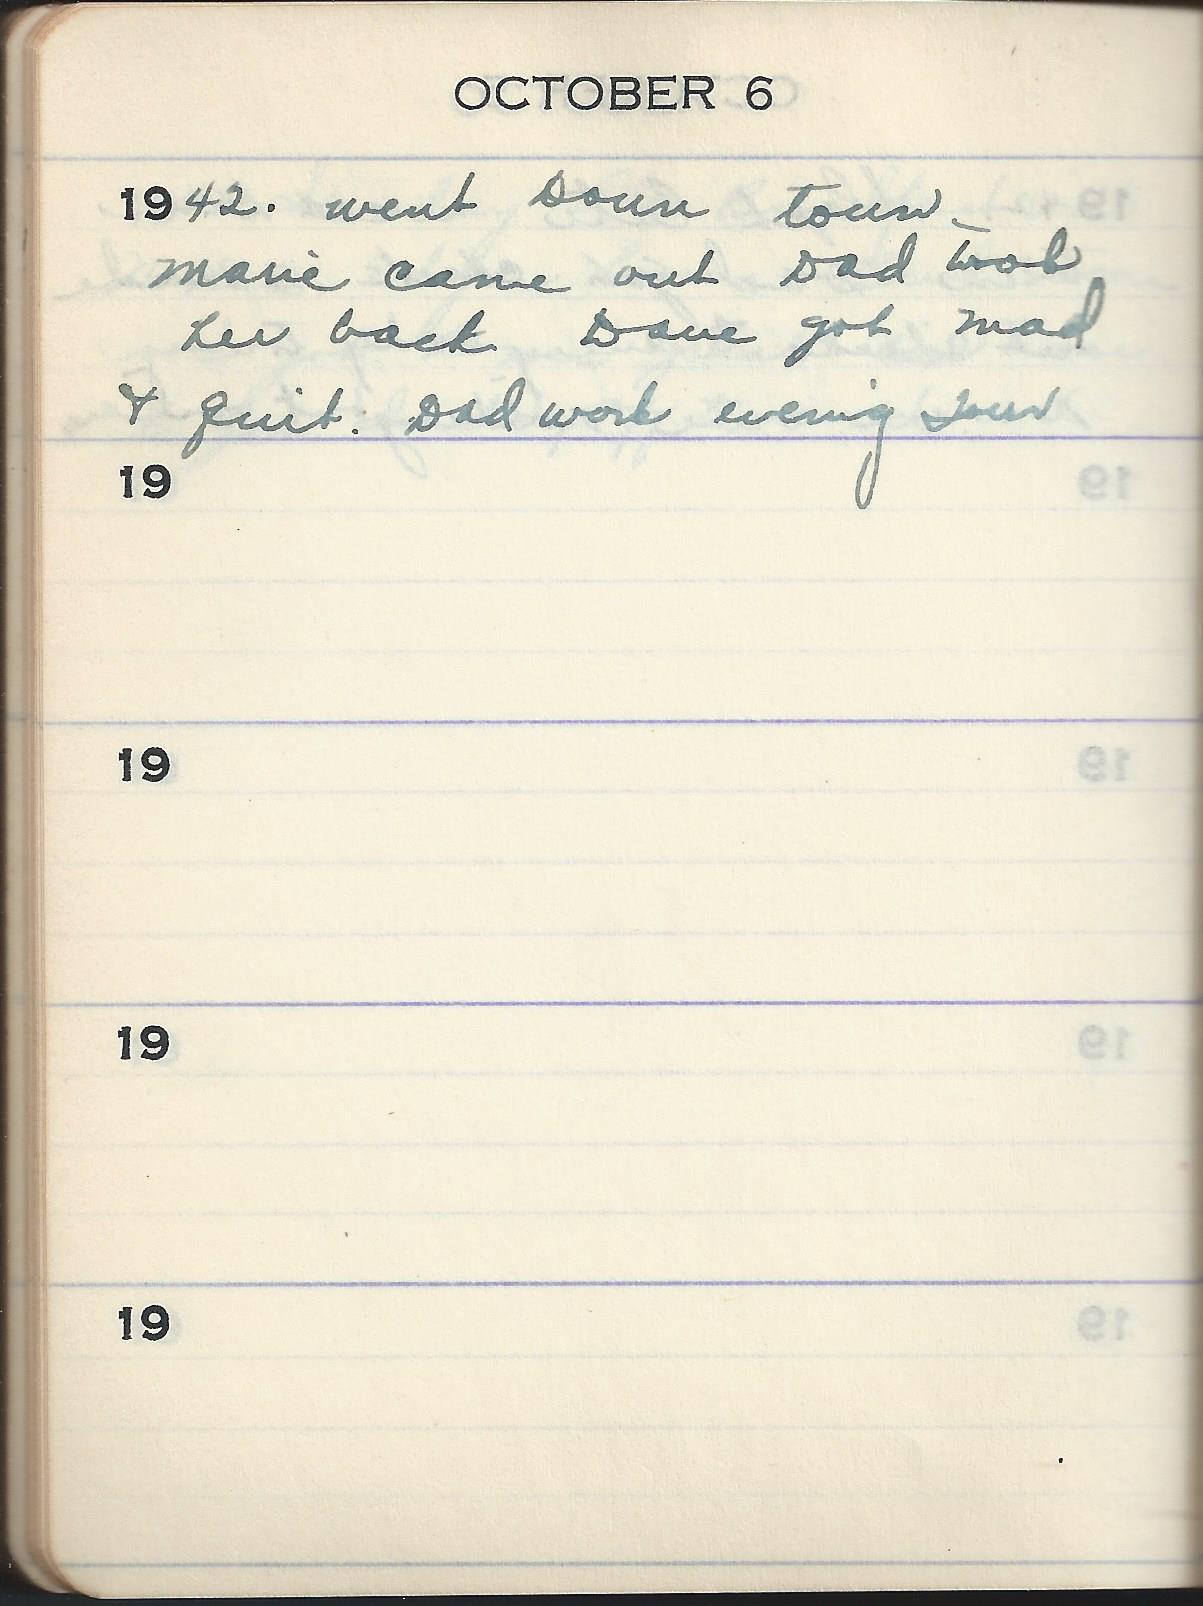 OCTOBER 6
1942. went Down town.
Marie came out Dad took
her back Dave got mad
& quit. Dad work evening tour
19
19
19
19